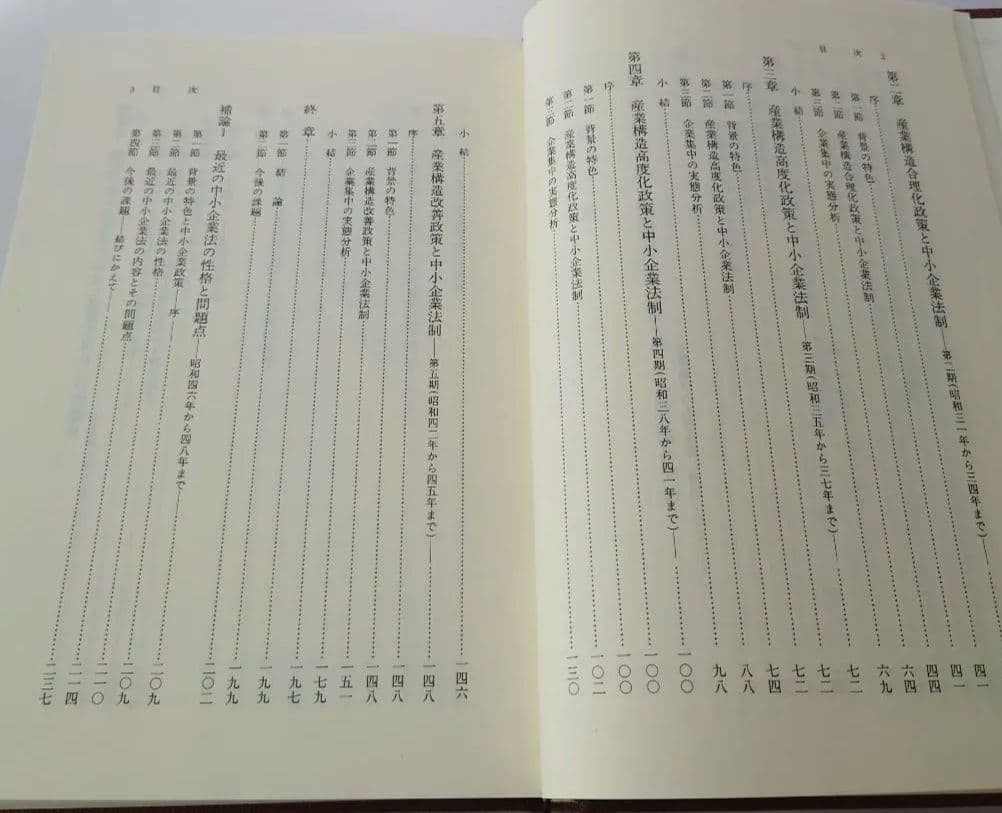 目次 2
第二章 産業構造合理化政策と中小企業法制——第二期(昭和三一年から三四年まで)——
序……四一
第一節 背景の特色……四一
第二節 産業構造合理化政策と中小企業法制……四四
第三節 企業集中の実態分析……六四
小結……六九
第三章 産業構造高度化政策と中小企業法制——第三期(昭和三五年から三七年まで)——……七二
序……七二
第一節 背景の特色……七二
第二節 産業構造高度化政策と中小企業法制……七四
第三節 企業集中の実態分析……八八
小結……九八
第四章 産業構造高度化政策と中小企業法制——第四期(昭和三八年から四一年まで)——……一〇〇
序……一〇〇
第一節 背景の特色……一〇〇
第二節 産業構造高度化政策と中小企業法制……一〇二
第三節 企業集中の実態分析……一三〇
3 目次
小結……一四六
第五章 産業構造改善政策と中小企業法制——第五期(昭和四二年から四五年まで)——……一四八
序……一四八
第一節 背景の特色……一四八
第二節 産業構造改善政策と中小企業法制……一五一
第三節 企業集中の実態分析……一七九
小結……一九七
終章……一九九
第一節 結論……一九九
第二節 今後の課題……二〇二
補論Ⅰ 最近の中小企業法の性格と問題点——昭和四六年から四八年まで——……二〇九
第一節 背景の特色と中小企業政策——序……二〇九
第二節 最近の中小企業法の性格……二一〇
第三節 最近の中小企業法の内容とその問題点……二一四
第四節 今後の課題——結びにかえて……二三七